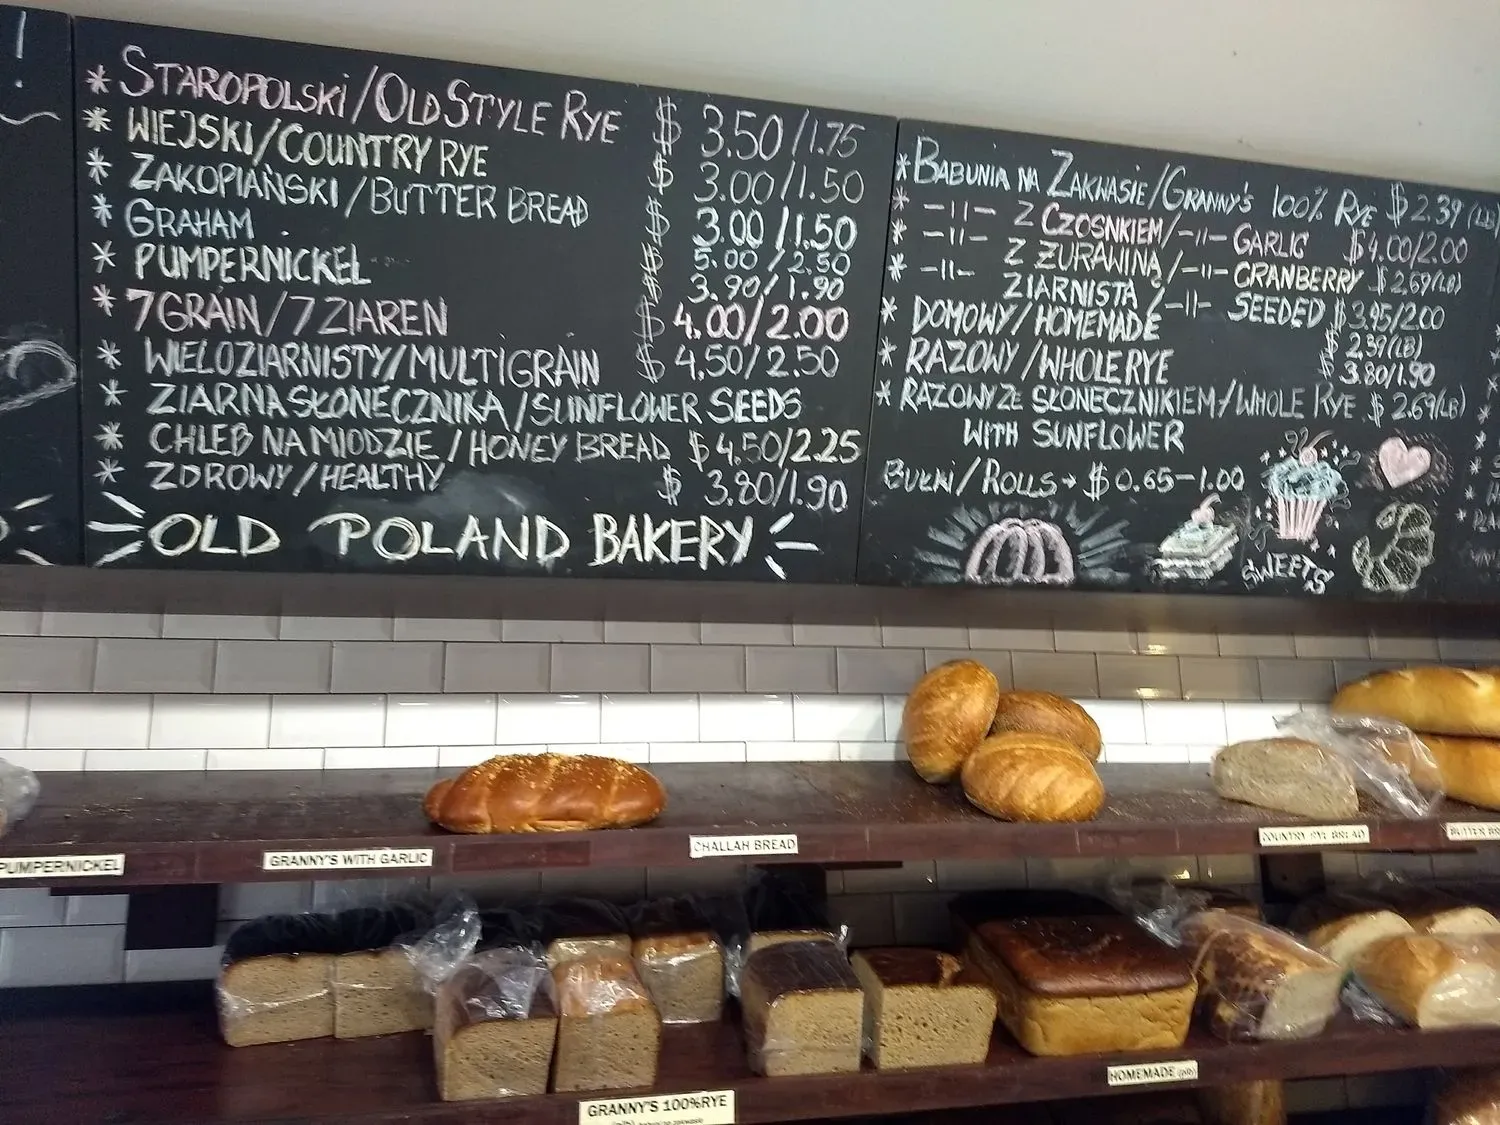 !
* STAROPOLSKI/OLD STYLE RYE $ 3.50/1.75
* WIEJSKI/COUNTRY RYE $ 3.00/1.50
* ZAKOPIAŃSKI/BUTTER BREAD $ 3.00/1.50
* GRAHAM $ 5.00/2.50
* PUMPERNICKEL $ 3.90/1.90
* 7 GRAIN/7 ZIAREN $ 4.00/2.00
* WIELOZIARNISTY/MULTIGRAIN $ 4.50/2.50
* ZIARNA SŁONECZNIKA/SUNFLOWER SEEDS
* CHLEB NA MIODZIE/HONEY BREAD $ 4.50/2.25
* ZDROWY/HEALTHY $ 3.80/1.90
OLD POLAND BAKERY
* BABUNIA NA ZAKWASIE/GRANNY'S 100% RYE $ 2.39 (LB)
* -11- Z CZOSNKIEM/-11- GARLIC $ 4.00/2.00
* -11- Z ŻURAWINĄ/-11- CRANBERRY $ 2.69(LB)
* -11- ZIARNISTA/-11- SEEDED $ 3.95/2.00
* DOMOWY/HOMEMADE $ 2.39(LB)
* RAZOWY/WHOLE RYE $ 3.80/1.90
* RAZOWY ZE SŁONECZNIKIEM/WHOLE RYE $ 2.69(LB)
WITH SUNFLOWER
BUŁKI/ROLLS → $ 0.65-1.00
SWEETS
PUMPERNICKEL
GRANNY'S WITH GARLIC
CHALLAH BREAD
COUNTRY RYE BREAD
BUTTER
HOMEMADE (plb)
GRANNY'S 100%RYE